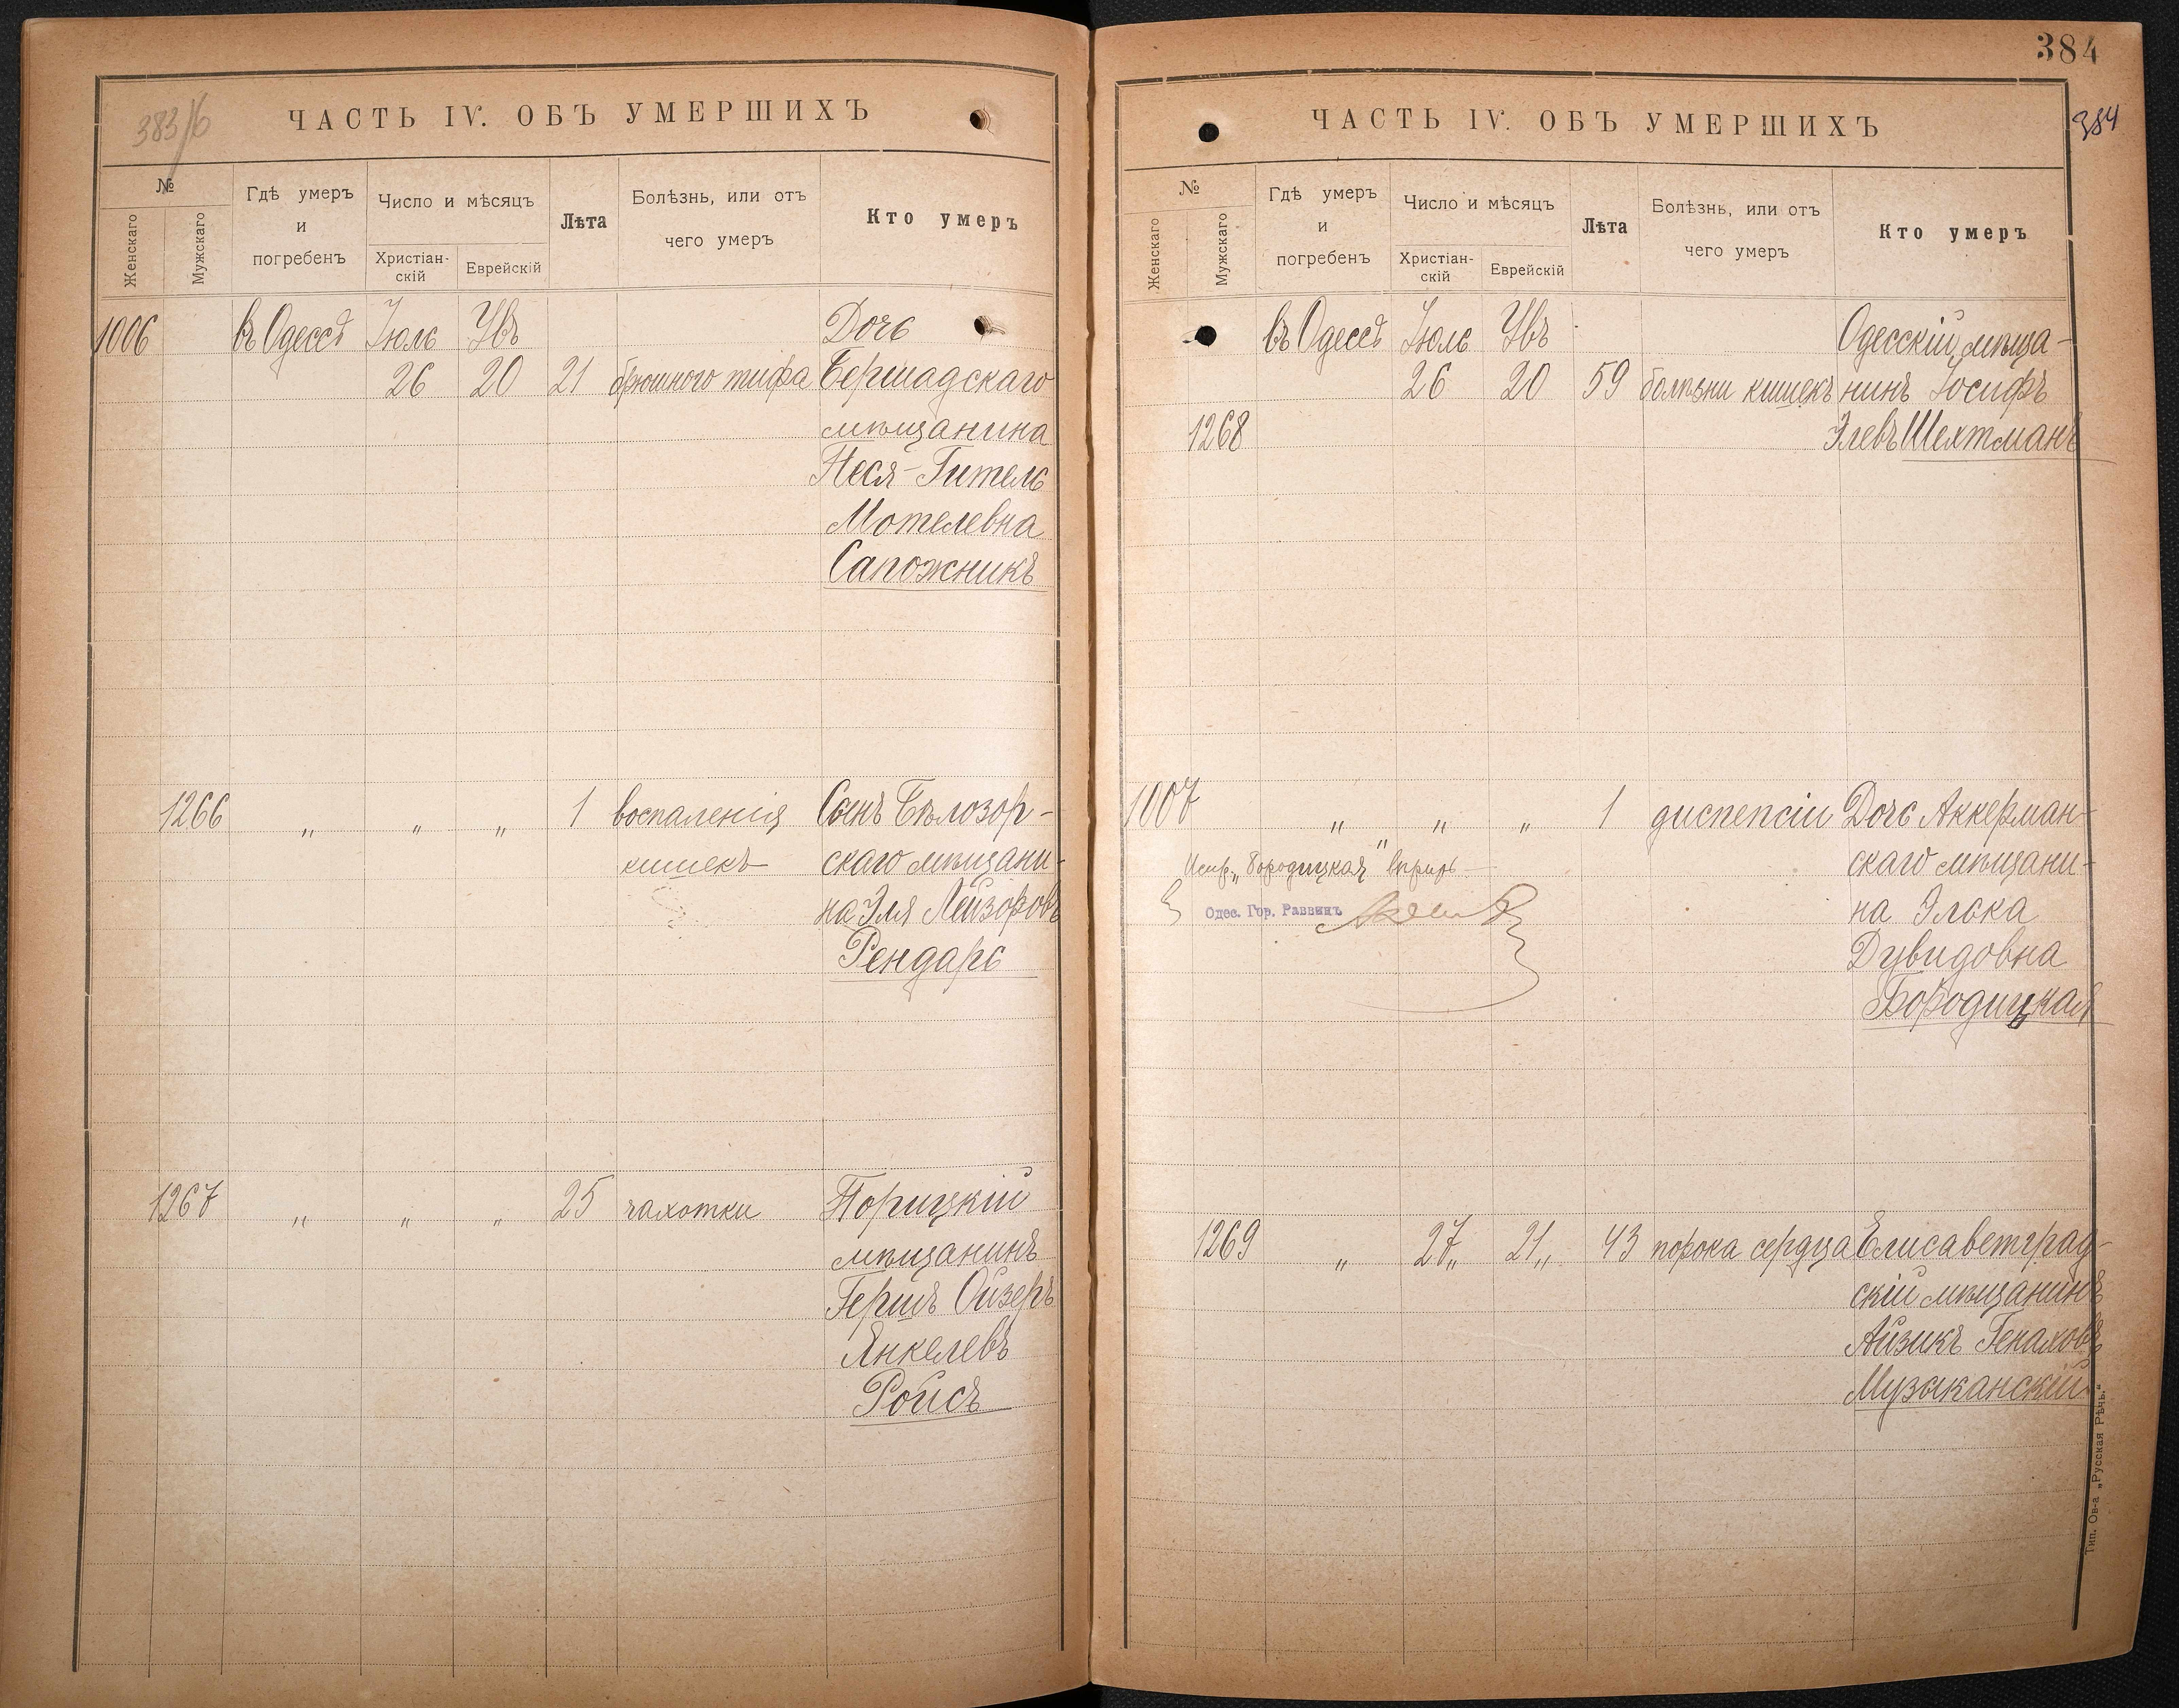 383/б
ЧАСТЬ IV. ОБЪ УМЕРШИХЪ
№
Женскаго
Мужскаго
Гдѣ умеръ и погребенъ
Число и мѣсяцъ
Христіан-скій
Еврейскій
Лѣта
Болѣзнь, или отъ чего умеръ
Кто умеръ
1006 въ Одессѣ Іюль Увъ Дочь
26 20 21 брюшного тифа Бершадскаго
мѣщанина
Неся-Гитель
Мотелевна
Сапожникъ
1266 " " " 1 воспаленія Сынъ Бѣлозор-
кишекъ скаго мѣщани-
на Эля Лейзоровъ
Рендарь
1267 " " " 25 чахотки Торицкій
мѣщанинъ
Гершъ Ойзеръ
Янкелевъ
Ройсъ
384
384
ЧАСТЬ IV. ОБЪ УМЕРШИХЪ
№
Женскаго
Мужскаго
Гдѣ умеръ и погребенъ
Число и мѣсяцъ
Христіан-скій
Еврейскій
Лѣта
Болѣзнь, или отъ чего умеръ
Кто умеръ
въ Одессѣ Іюль Увъ Одесскій мѣща-
26 20 59 болѣзни кишекъ нинъ Іосифъ
1268 Элевъ Шехтманъ
1007 " " " 1 диспепсіи Дочь Аккерман-
Испр. „Бородицкая" вѣрить скаго мѣщани-
Одес. Гор. Раввинъ на Элька
Дувидовна
Бородицкая
1269 " 27" 21" 43 порока сердца Елисаветград-
скій мѣщанинъ
Айзикъ Генаховъ
Музыканскій
Тип. Ов-а „Русская Рѣчь."